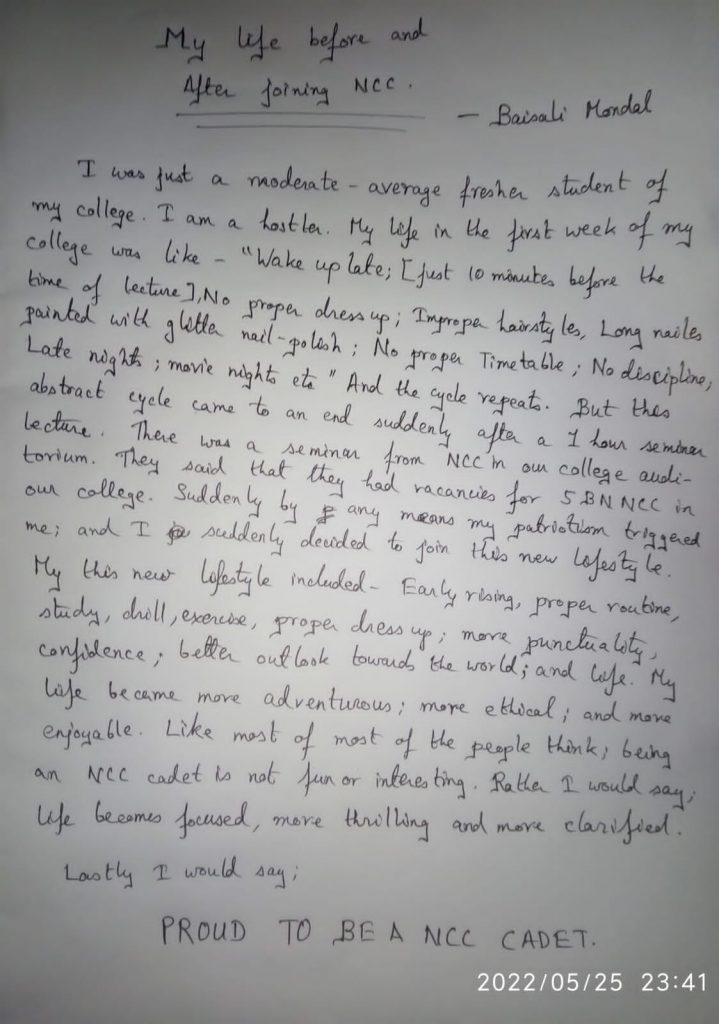 My life before and
After joining NCC.
— Baisali Mondal
I was just a moderate - average fresher student of
my college. I am a hostler. My life in the first week of my
college was like - "Wake up late; [just 10 minutes before the
time of lecture], No proper dress up; Improper hairstyles, Long nailes
painted with glitter nail-polish; No proper Timetable; No discipline,
Late nights; movie nights etc" And the cycle repeats. But this
abstract cycle came to an end suddenly after a 1 hour seminar
lecture. There was a seminar from NCC in our college audi-
torium. They said that they had vacancies for 5 BN NCC in
our college. Suddenly by any means my patriotism triggered
me; and I suddenly decided to join this new lifestyle.
My this new lifestyle included - Early rising, proper routine,
study, drill, exercise, proper dress up; more punctuality,
confidence; better outlook towards the world; and life. My
life became more adventurous; more ethical; and more
enjoyable. Like most of most of the people think; being
an NCC cadet is not fun or interesting. Rather I would say;
life becomes focused, more thrilling and more clarified.
Lastly I would say;
PROUD TO BE A NCC CADET.
2022/05/25 23:41